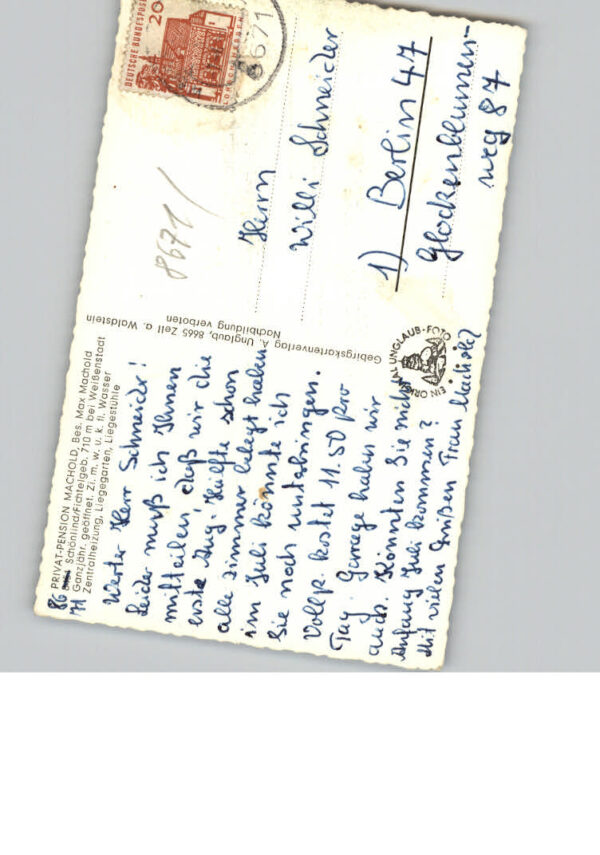 PRIVAT-PENSION MACHOLD, Bes. Max Machold
8671 Schönlind/Fichtelgeb. 710 m bei Weißenstadt
Ganzjähr. geöffnet. Zi. m. w. u. k. fl. Wasser
Zentralheizung, Liegegarten, Liegestühle
Werter Herr Schneider!
Leider muß ich Ihnen
mitteilen, daß wir die
erste Aug. Hälfte schon
alle Zimmer belegt haben
im Juli könnte ich
Sie noch unterbringen.
Vollp. kostet 11.50 pro
Tag Garage haben wir
auch. Könnten Sie nicht
Anfang Juli kommen?
Mit vielen Grüßen Frau Machold
Gebirgskartenverlag A. Unglaub, 8665 Zell a. Waldstein
Nachbildung verboten
EIN ORIGINAL UNGLAUB-FOTO
DEUTSCHE BUNDESPOST
20
8671
8671/
Herrn
Willi Schneider
1) Berlin 47
Glockenblumen-
weg 87